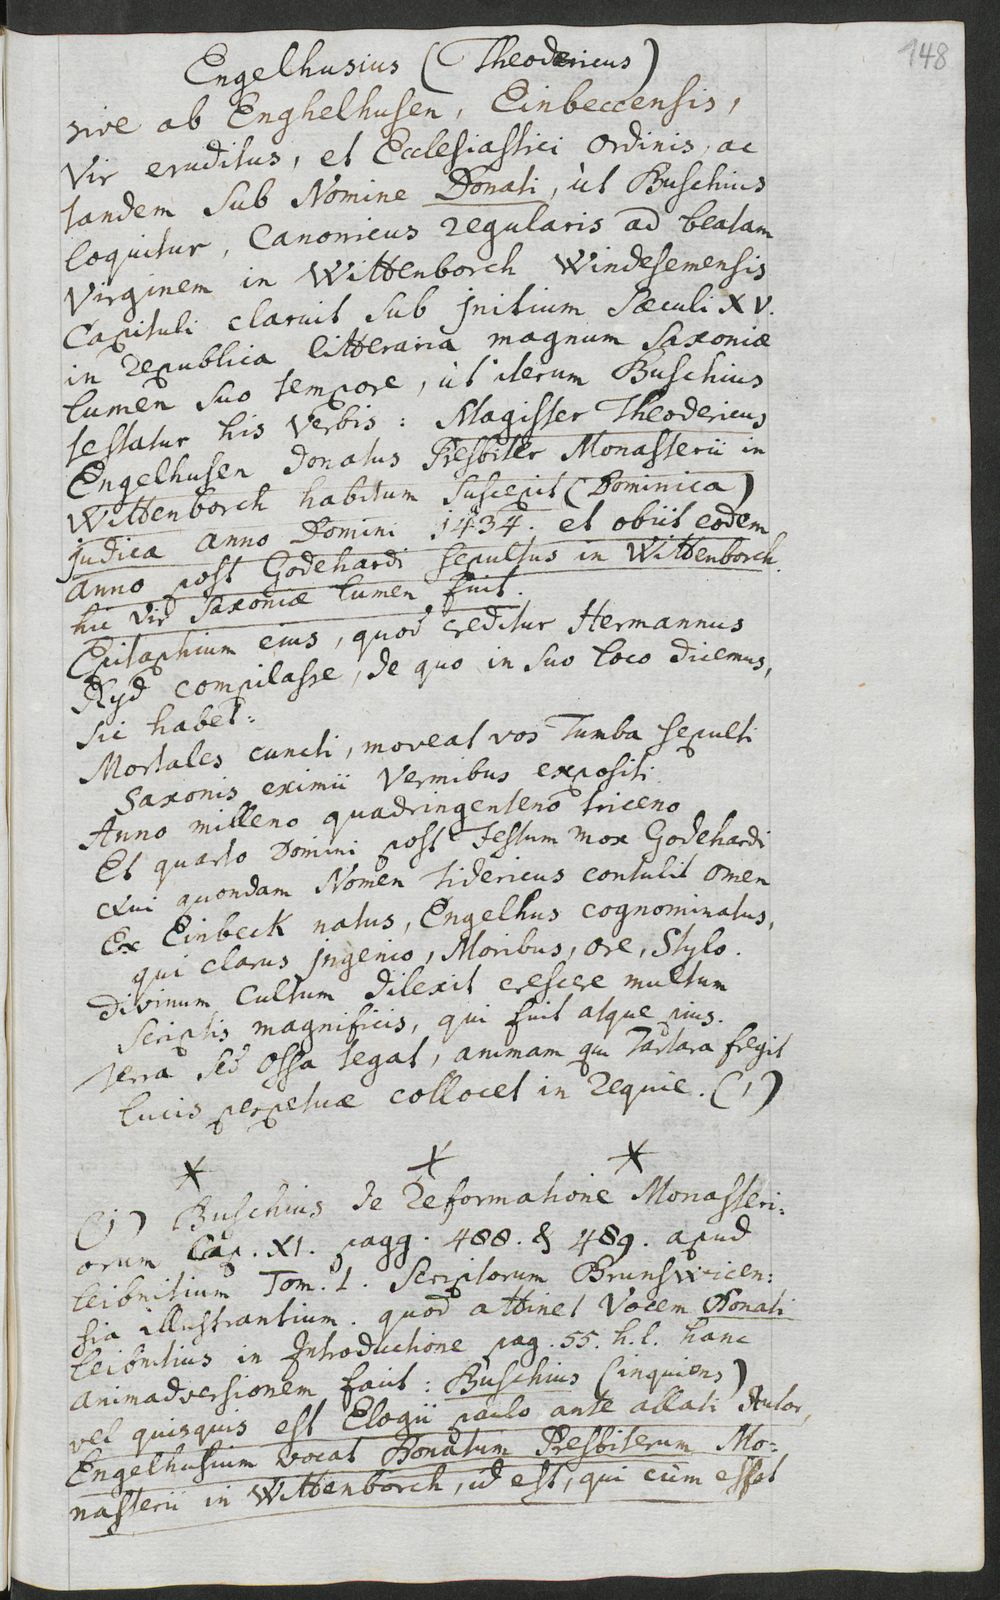 148
Engelhusius (Theodericus)
sive ab Enghelhusen, Einbeccensis,
Vir eruditus, et Ecclesiastici Ordinis, ac
tandem sub Nomine Donati, ùt Buschius
loquitur, Canonicus regularis ad beatam
Virginem in Wittenborch Windesemensis
Capituli claruit sub jnitium Sæculi XV.
in republica litteraria magnum Saxoniæ
lumen suo tempore, ùt iterum Buschius
testatur his verbis: Magister Theodericus
Engelhusen Donatus Presbiter Monasterii in
Wittenborch habitum suscepit (Dominica)
judica anno Domini 1434. et obiit eodem
anno post Godehardi sepultus in Wittenborch.
hic vir Saxoniæ lumen fuit.
Epitaphium eius, quod creditur Hermannus
Ryd compilasse, de quo in suo loco dicemus,
sic habet:
Mortales cuncti, moveat vos Tumba sepulti
Saxonis eximii vermibus expositi.
Anno milleno quadringenteno triceno
Et quarto Domini post Festum mox Godehardi
Cui quondam Nomen Tidericus contulit omen
Ex Einbeck natus, Engelhus cognominatus,
qui clarus jngenio, Moribus, ore, Stylo.
Divinum Cultum dilexit crescere multum
Scriptis magnificis, qui fuit atque pius.
Terra sed ossa tegat, animam qui Tartara fregit
lucis perpetuæ collocet in requie. (1)
(1) Buschius de reformatione Monasteri:
orum Cap. XI. pagg. 488. & 489. apud
leibnitium Tom. 1. Scriptorum Brunswicen:
sia illustrantium. quod attinet Vocem Donati
leibnitius in Introductione pag. 55. h. l. hanc
animadversionem facit: Buschius (inquiens)
vel quisquis est Elogii paulo ante allati Autor,
Engelhusium vocat Donatum Presbiterum Mo:
nasterii in Wittenborch, id est, qui cùm esset